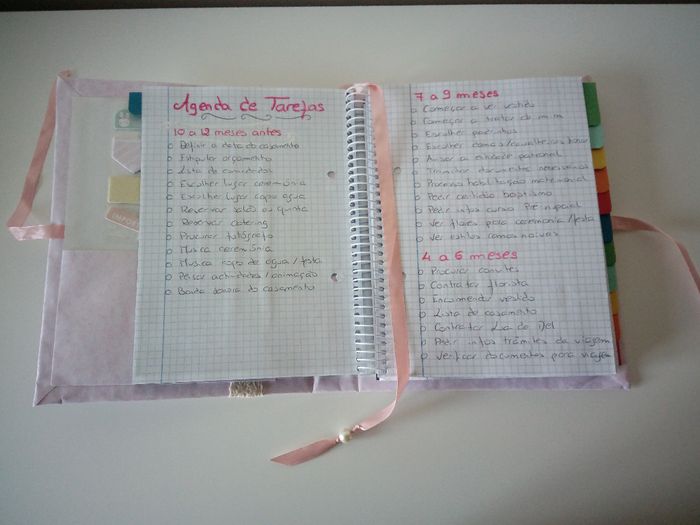 Agenda de Tarefas
10 a 12 meses antes
Definir a data do casamento
Estipular orçamento
Lista de convidados
Escolher lugar cerimónia
Escolher lugar copo água
Reservar salão ou quinta
Reservar catering
Procurar fotógrafo
Musica cerimónia
Musica copo de água / festa
Pensar actividades / animação
Banda sonora do casamento
7 a 9 meses
Começar a ver vestido
Começar a tratar de mim
Escolher padrinhos
Escolher damas /
Avisar a entidade patronal
Tramitar documentos necessários
Processo habilitação matrimonial
Pedir certidão baptismo
Pedir infos curso Pré nupcial
Ver flores para cerimónia / festa
Ver estilos
4 a 6 meses
Procurar convites
Contratar florista
Encomendar vestido
Lista de casamento
Contratar Lua de Mel
Pedir infos trâmites da viagem
Verificar documentos para viagem